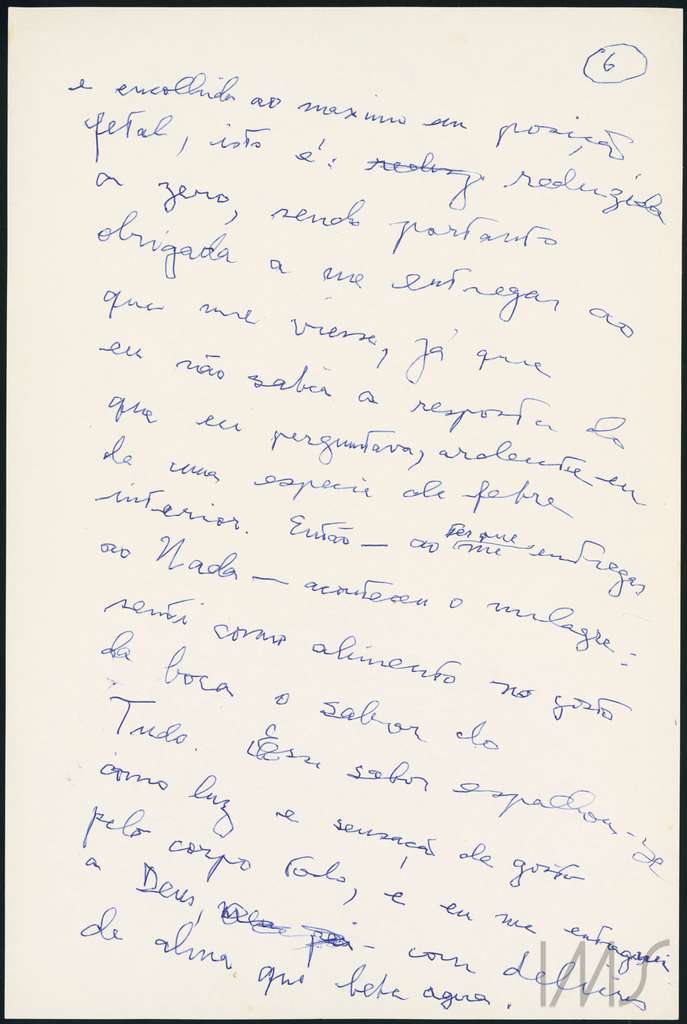 6
e encolhida ao maximo em posição
fetal, isto é: reduzida
a zero, sendo portanto
obrigada a me entregar ao
que me viesse, já que
eu não sabia a resposta do
que eu perguntava, ardente em
de uma especie de febre
interior. Então — ao ter que me entregar
ao Nada — aconteceu o milagre:
senti como alimento no gosto
da boca o sabor do
Tudo. Esse sabor espalhou-se
como luz e sensação de gosto
pelo corpo todo, e eu me entreguei
a Deus, — com delicias
de alma que bebe agua.
IMS